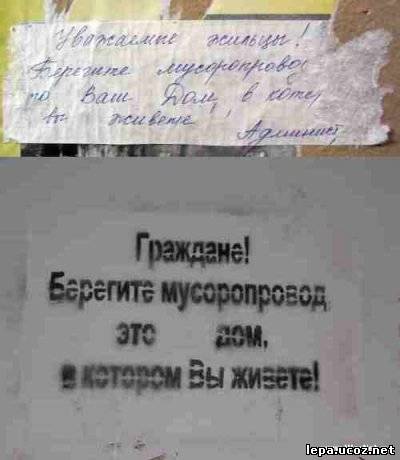 Уважаемые жильцы!
Берегите мусоропровод
то Ваш Дом, в кото
вы живете!
Админист
Граждане!
Берегите мусоропровод,
это дом,
в котором Вы живете!
lepa.ucoz.net